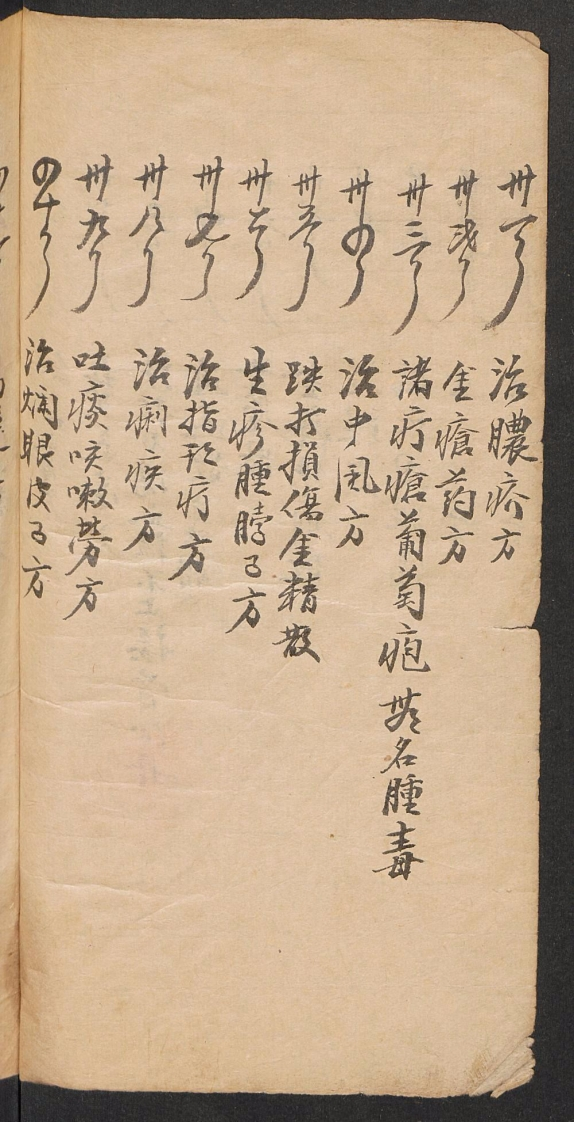 卅一 治膿疥方
卅弍 金瘡药方
卅三 諸疔瘡葡萄疱 無名腫毒
卅四 治中風方
卅五 跌打損傷金精散
卅六 生疹腫子方
卅七 治指疔方
卅八 治痢疾方
卅九 吐痰咳嗽勞方
四十 治爛眼皮子方